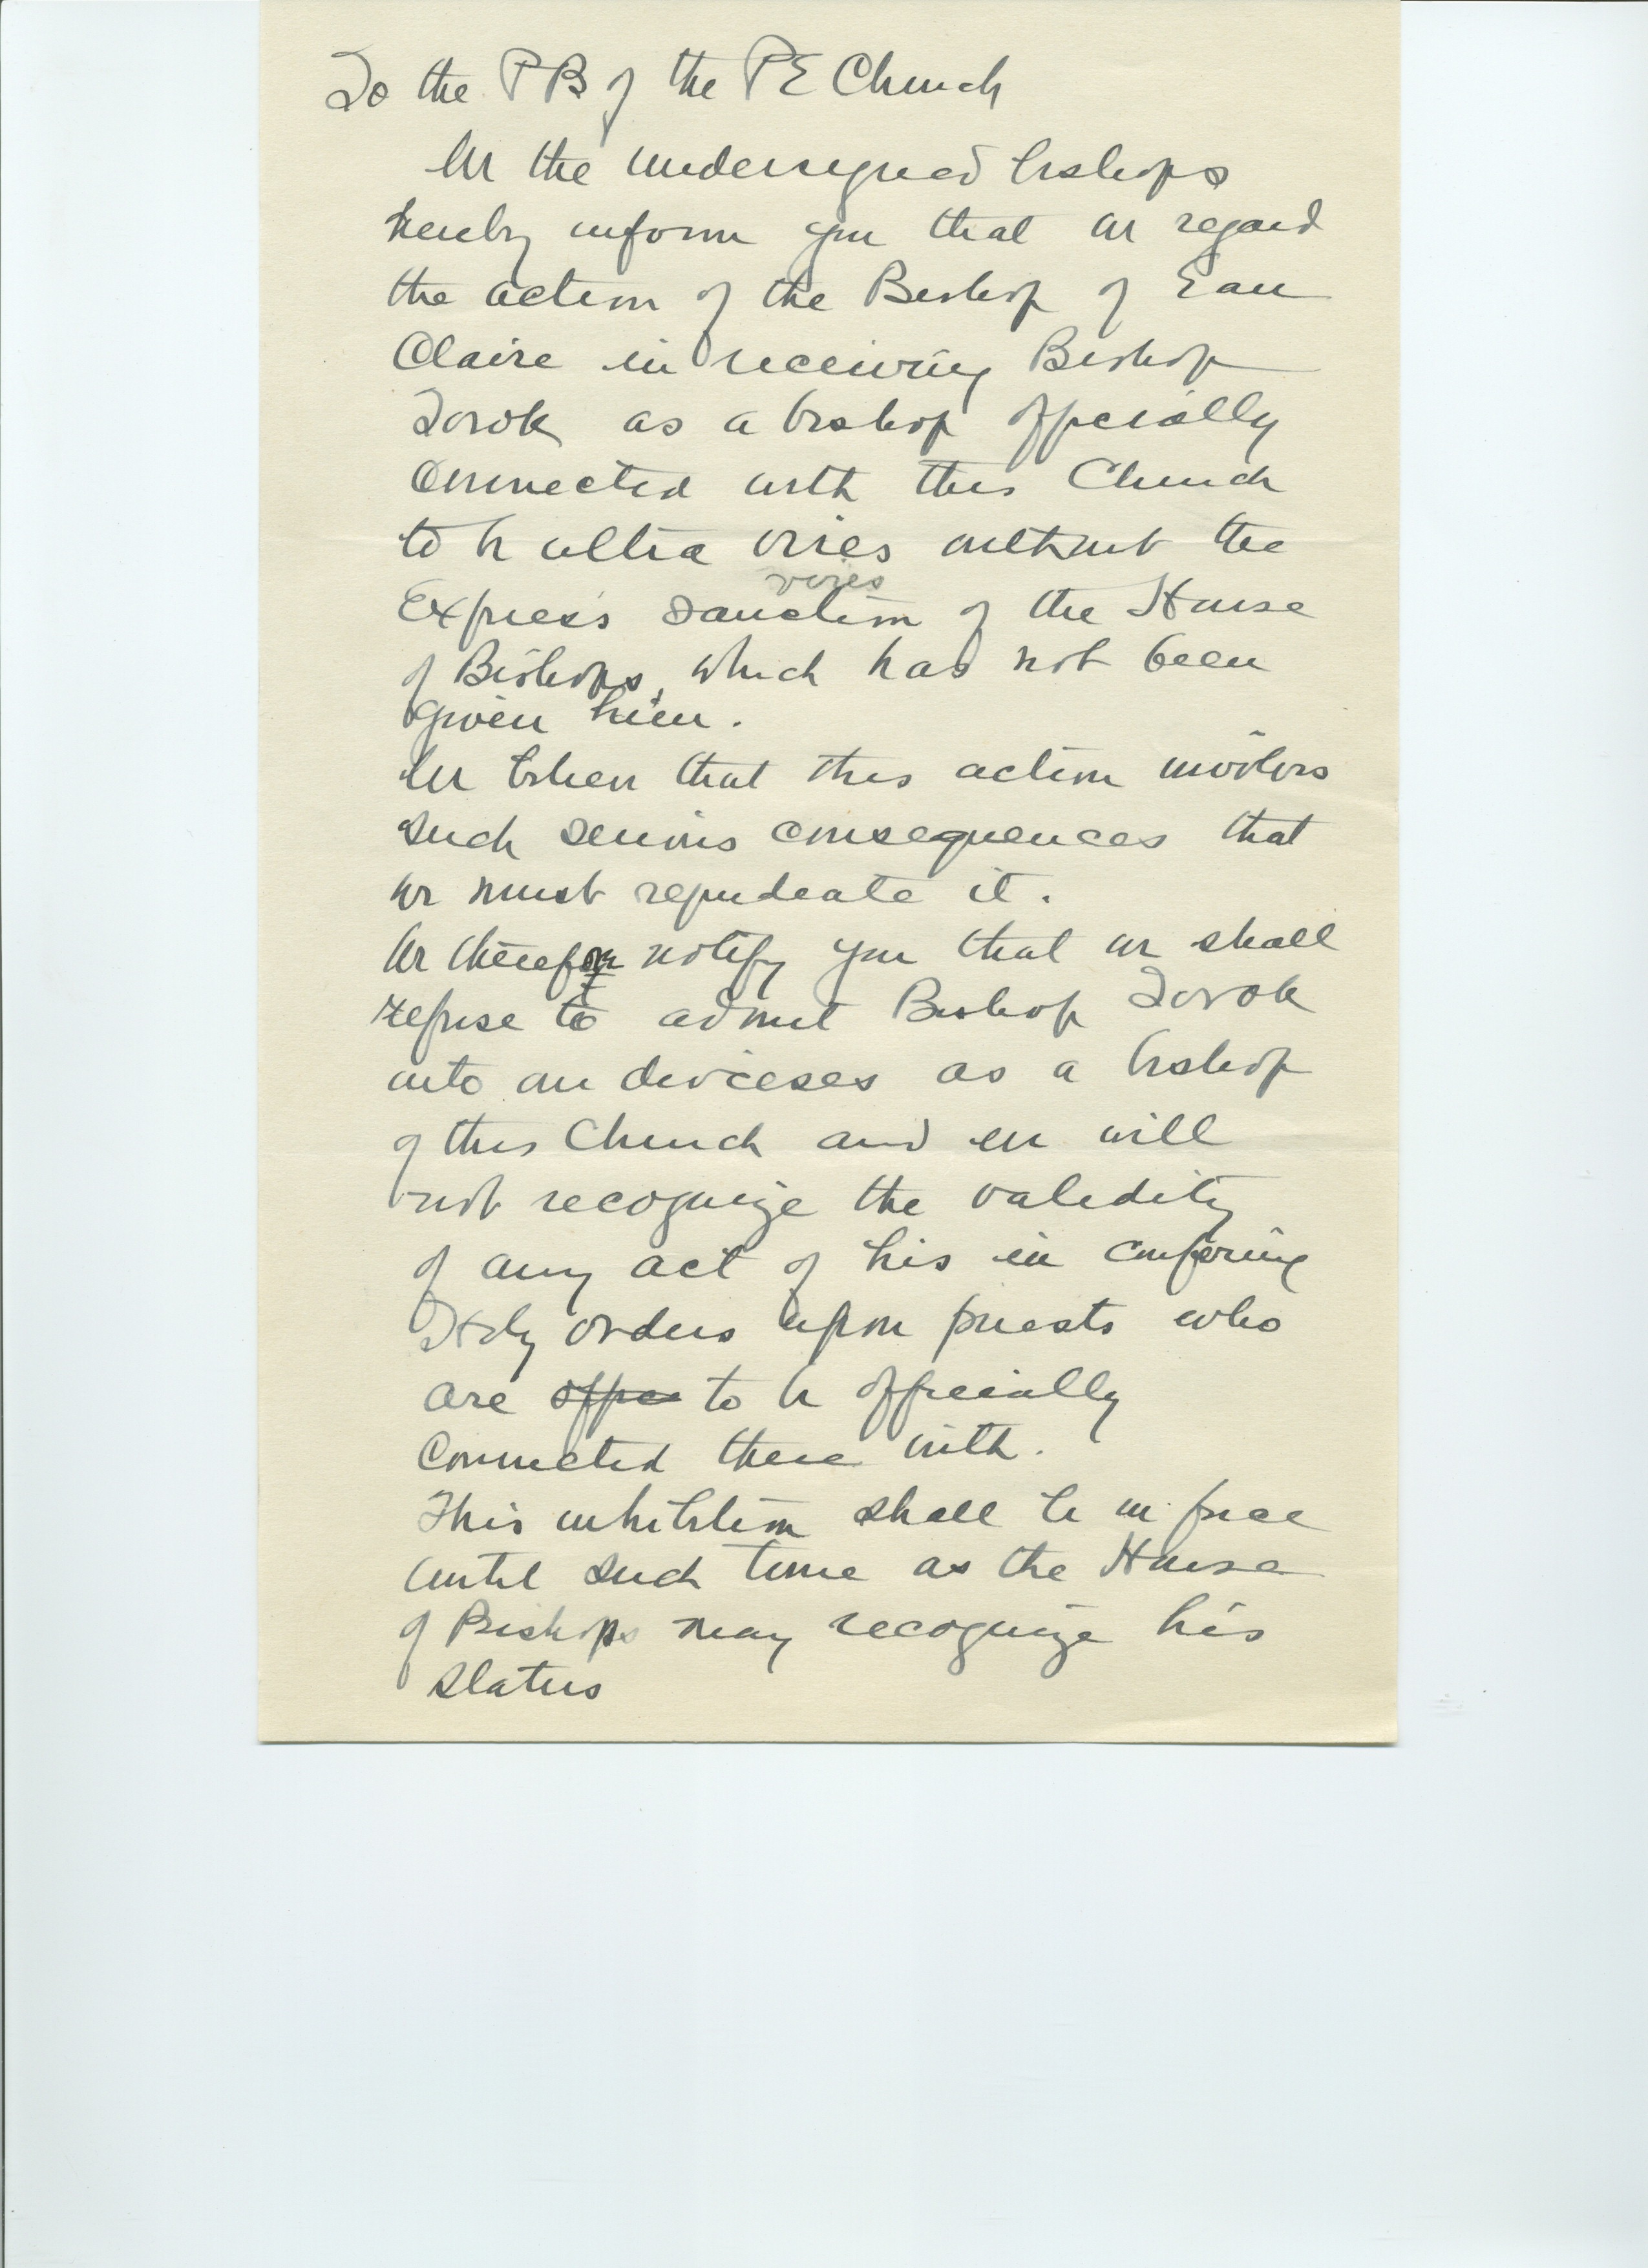 To the PB of the PE Church
We the undersigned bishops
hereby inform you that we regard
the action of the Bishop of Eau
Claire in receiving Bishop
Torok as a bishop officially
connected with this Church
to be ultra vires without the
vires
express sanction of the House
of Bishops, which has not been
given him.
We believe that this action involves
such serious consequences that
we must repudiate it.
We therefore notify you that we shall
refuse to admit Bishop Torok
into our dioceses as a bishop
of this Church and we will
not recognize the validity
of any act of his in confering
Holy orders upon priests who
are offic to be officially
connected there with.
This inhibition shall be in force
until such time as the House
of Bishops may recognize his
status